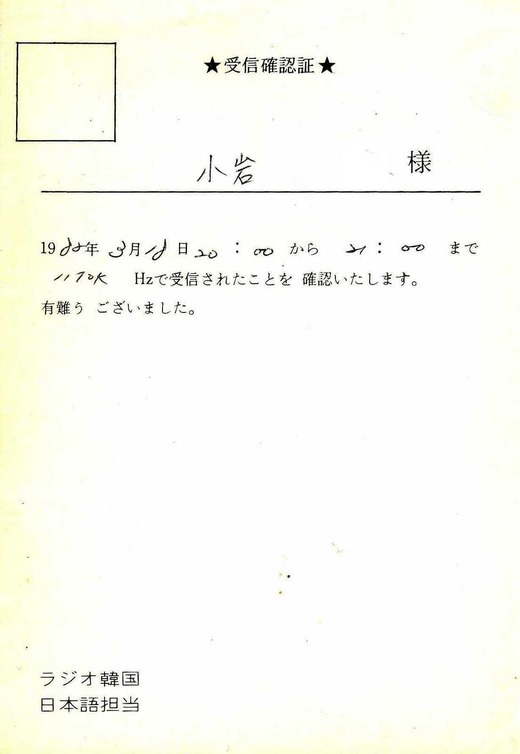 ★受信確認証★
小岩 様
1988年 3月18日 20 : 00 から 21 : 00 まで
1170K Hzで受信されたことを 確認いたします。
有難う ございました。
ラジオ韓国
日本語担当